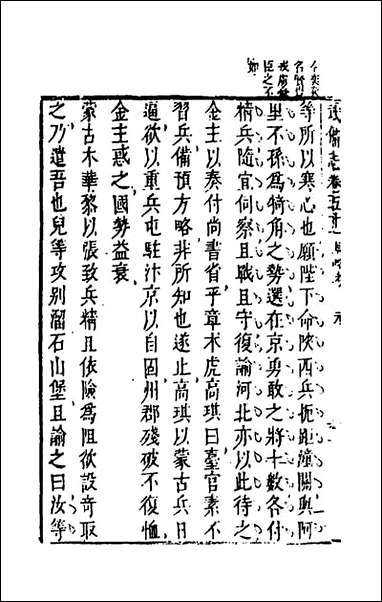 武備志卷五十一
等所以寒心也願陛下命陝西兵扼距潼關與阿
里不孫為犄角之勢選在京勇敢之將十數各付
精兵隨宜伺察且戰且守復諭河北亦以此待之
金主以奏付尚書省平章术虎高琪曰臺官素不
習兵備預方略非所知也遂止高琪以蒙古兵日
逼欲以重兵屯駐汴京以自固州郡殘破不復恤
金主惑之國勢益衰
蒙古木華黎以張致兵精且依險為阻欲設奇取
之乃遣吾也兒等攻别溜石山堡且諭之曰汝等